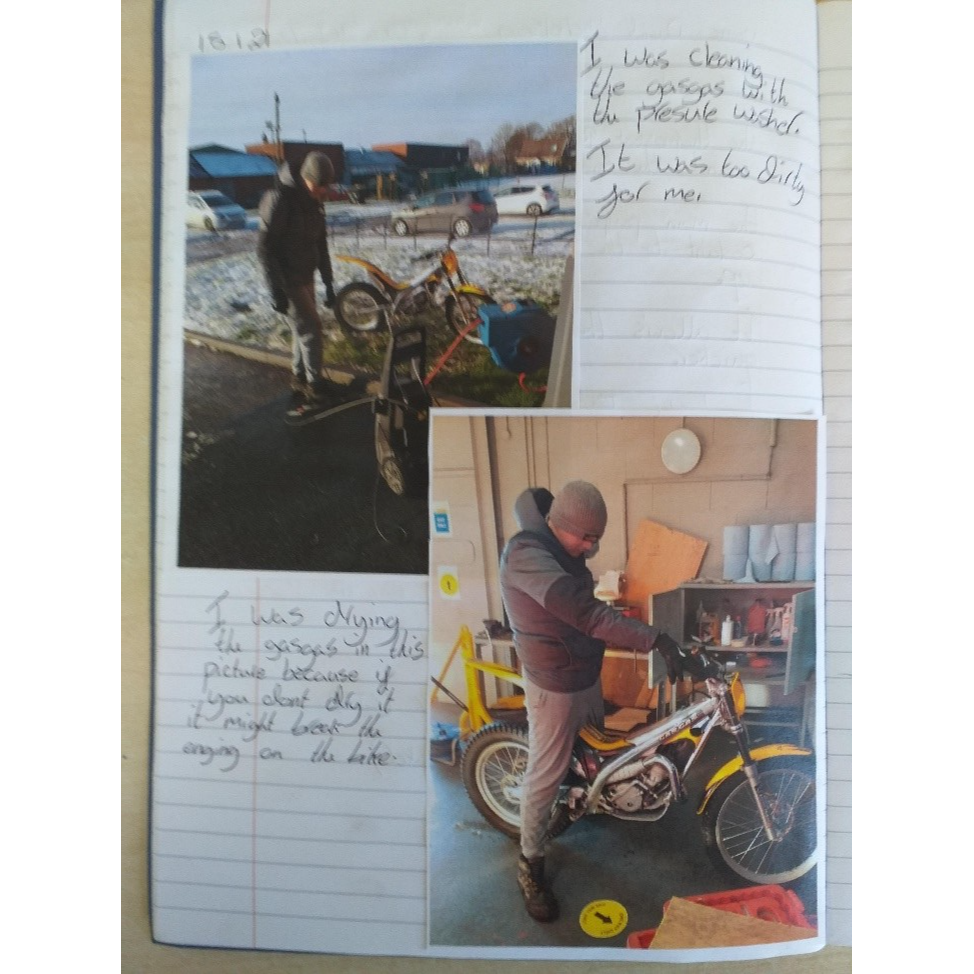 18.1.21
I was cleaning
the gasgas with
the presure washer.
It was too Dirty
for me.
I was Drying
the gasgas in this
picture because if
you dont dry it
it might break the
enging on the bike.